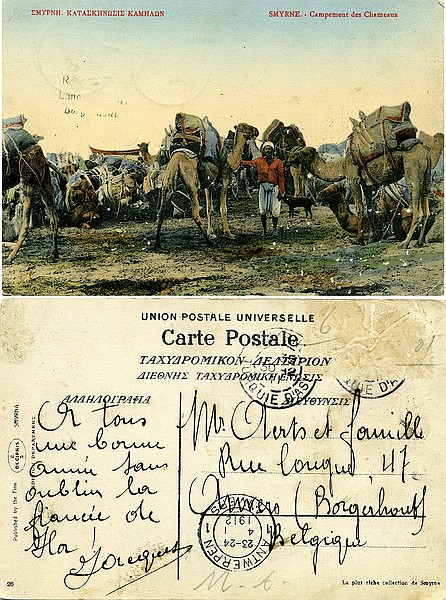 ΣΜΥΡΝΗ. ΚΑΤΑΣΚΗΝΩΣΙΣ ΚΑΜΗΛΩΝ
SMYRNE. - Campement des Chameaux
UNION POSTALE UNIVERSELLE
Carte Postale.
ΤΑΧΥΔΡΟΜΙΚΟΝ ΔΕΛΤΑΡΙΟΝ
ΔΙΕΘΝΗΣ ΤΑΧΥΔΡΟΜΙΚΗ ΕΝΩΣΙΣ
ΑΛΛΗΛΟΓΡΑΦΙΑ
ΔΙΕΥΘΥΝΣΙΣ
QUIE D'AS
UIE D'A
A tous
une bonne
année sans
oublier la
fiancée de
Flor,
Jacques
Mr. Aerts et famille
Rue Longue, 47
Anvers (Borgerhout)
Belgique
ANTWERPEN 1
23-24
4 1
1912
Published by the Firm
SMYRNA
26
La plus riche collection de Smyrne